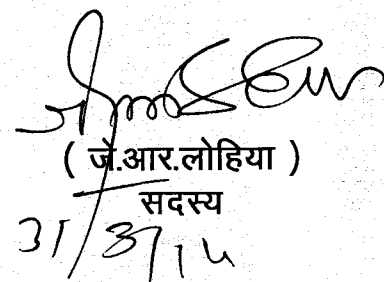 ( जे.आर.लोहिया )
सदस्य
31/3/14